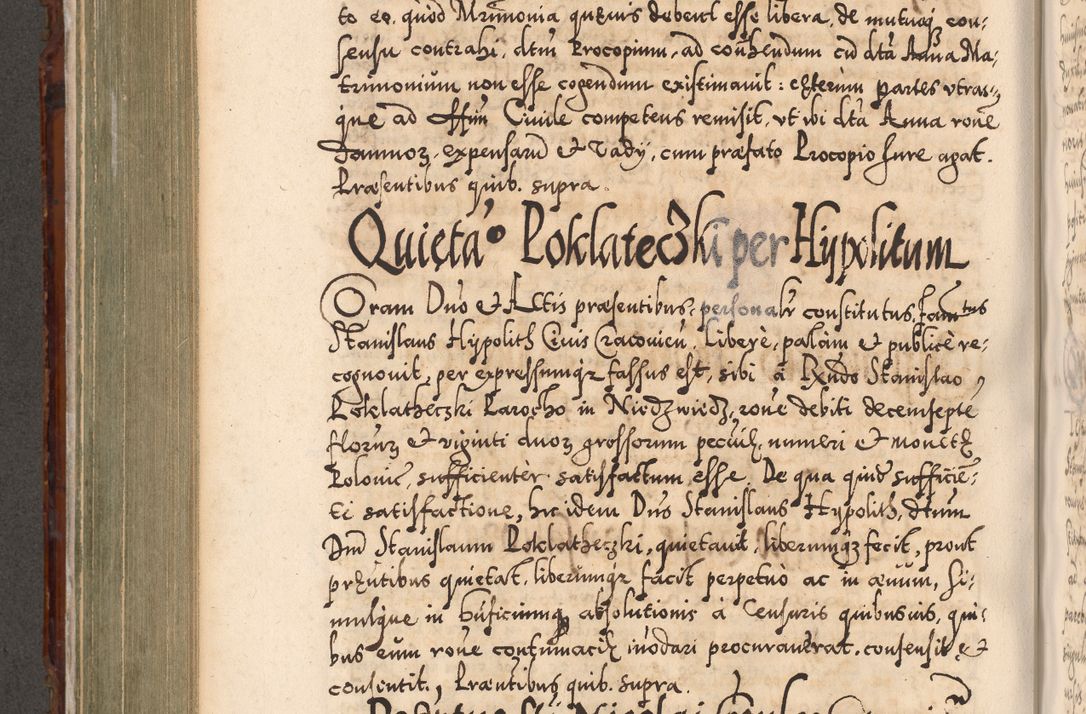 to eo, quod Mrimonia quæuis debent esse libera, de mutuoq con-
sensu contrahi, dtm Procopium, ad conhendum cu dta Anna Ma-
trimonium non esse cogendum existimauit: cæterum partes vtras-
que ad Offm Ciuile competens remisit, vt ibi dta Anna rone
damnoz, expensaru et Vady, cum præfato Procopio Jure agat.
Præsentibus quib. supra.
Quieta Poklateczki per Hypolitum
Coram Dno et Actis præsentibus, personalr constitutus, Famtus
Stanislaus Hypolith Ciuis Cracouien, Liberè, palàm et publicè re-
cognouit, per expressumqz fassus est, sibi à Rndo Stanislao
Poklatheczki Parocho in Niedzwiedz, rone debiti decemsepte
florenz et viginti duoz grossorum pecuniæ, numeri et monetæ
Polonic, sufficientèr satisfactum esse. De qua quide sufficie-
ti satisfactione, hic idem Dns Stanislaus Hypolith, dtum
Dnm Stanislaum Poklatheczki, quietauit, liberumqz fecit, prout
præntibus quietat, liberumqz facit perpetuò ac in æuum, Si-
mulque in bnficiumq absolutionis à Censuris quibusuis, qui-
bus eum rone contumaciæ inodari procurauerat, consensit, et
consentit, Præntibus quib. supra.